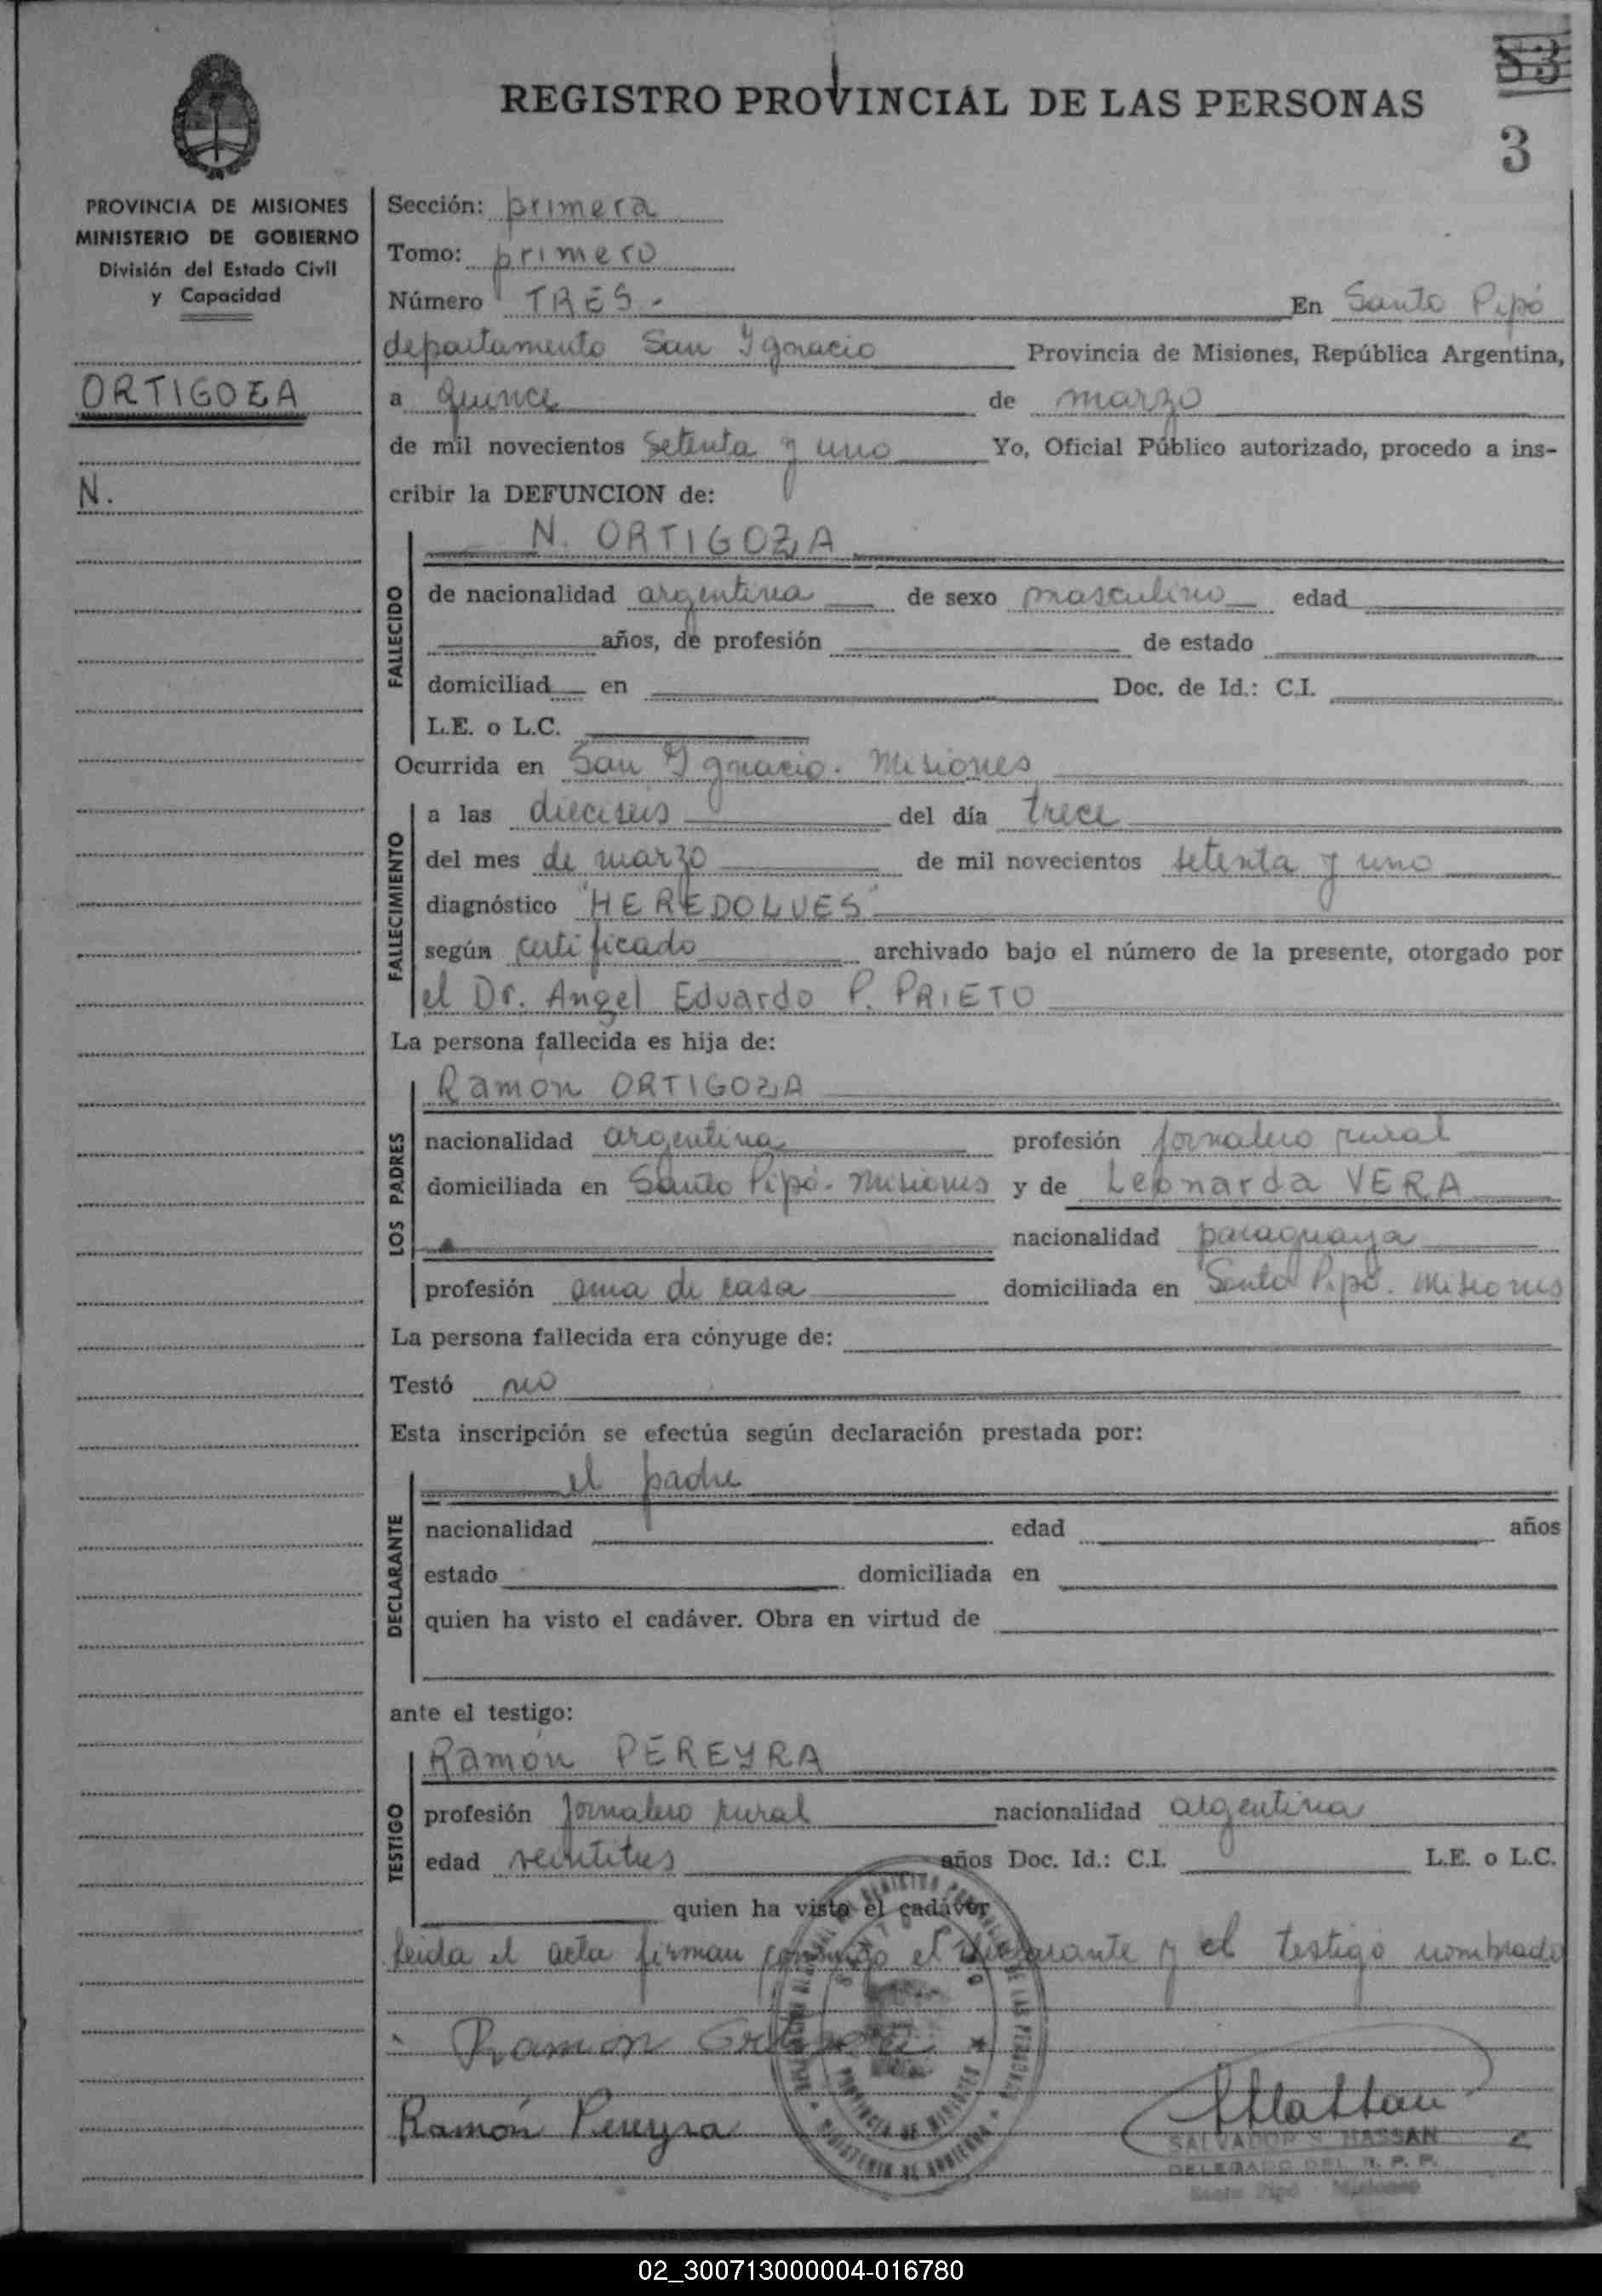 REGISTRO PROVINCIAL DE LAS PERSONAS
83
3
PROVINCIA DE MISIONES
MINISTERIO DE GOBIERNO
División del Estado Civil
y Capacidad
ORTIGOZA
N.
Sección: primera
Tomo: primero
Número TRES.- En Santo Pipó
departamento San Ignacio Provincia de Misiones, República Argentina,
a quince de marzo
de mil novecientos setenta y uno Yo, Oficial Público autorizado, procedo a ins-
cribir la DEFUNCION de:
FALLECIDO
N. ORTIGOZA
de nacionalidad argentina de sexo masculino edad
años, de profesión de estado
domiciliad en Doc. de Id.: C.I.
L.E. o L.C.
Ocurrida en San Ignacio. Misiones
FALLECIMIENTO
a las dieciseis del día trece
del mes de marzo de mil novecientos setenta y uno
diagnóstico "HEREDOLUES"
según certificado archivado bajo el número de la presente, otorgado por
el Dr. Angel Eduardo P. PRIETO
La persona fallecida es hija de:
LOS PADRES
Ramón ORTIGOZA
nacionalidad argentina profesión jornalero rural
domiciliada en Santo Pipó. Misiones y de Leonarda VERA
nacionalidad paraguaya
profesión ama de casa domiciliada en Santo Pipó. Misiones
La persona fallecida era cónyuge de:
Testó no
Esta inscripción se efectúa según declaración prestada por:
DECLARANTE
el padre
nacionalidad edad años
estado domiciliada en
quien ha visto el cadáver. Obra en virtud de
ante el testigo:
TESTIGO
Ramón PEREYRA
profesión jornalero rural nacionalidad argentina
edad veintitres años Doc. Id.: C.I. L.E. o L.C.
quien ha visto el cadáver
leida el acta firman conmigo el declarante y el testigo nombrado
Ramon Ortigoza
Ramón Pereyra
SALVADOR S. HASSAN
DELEGADO DEL R. P. P.
Santo Pipó Misiones
PROVINCIA DE MISIONES
MINISTERIO DE GOBIERNO
02_300713000004-016780